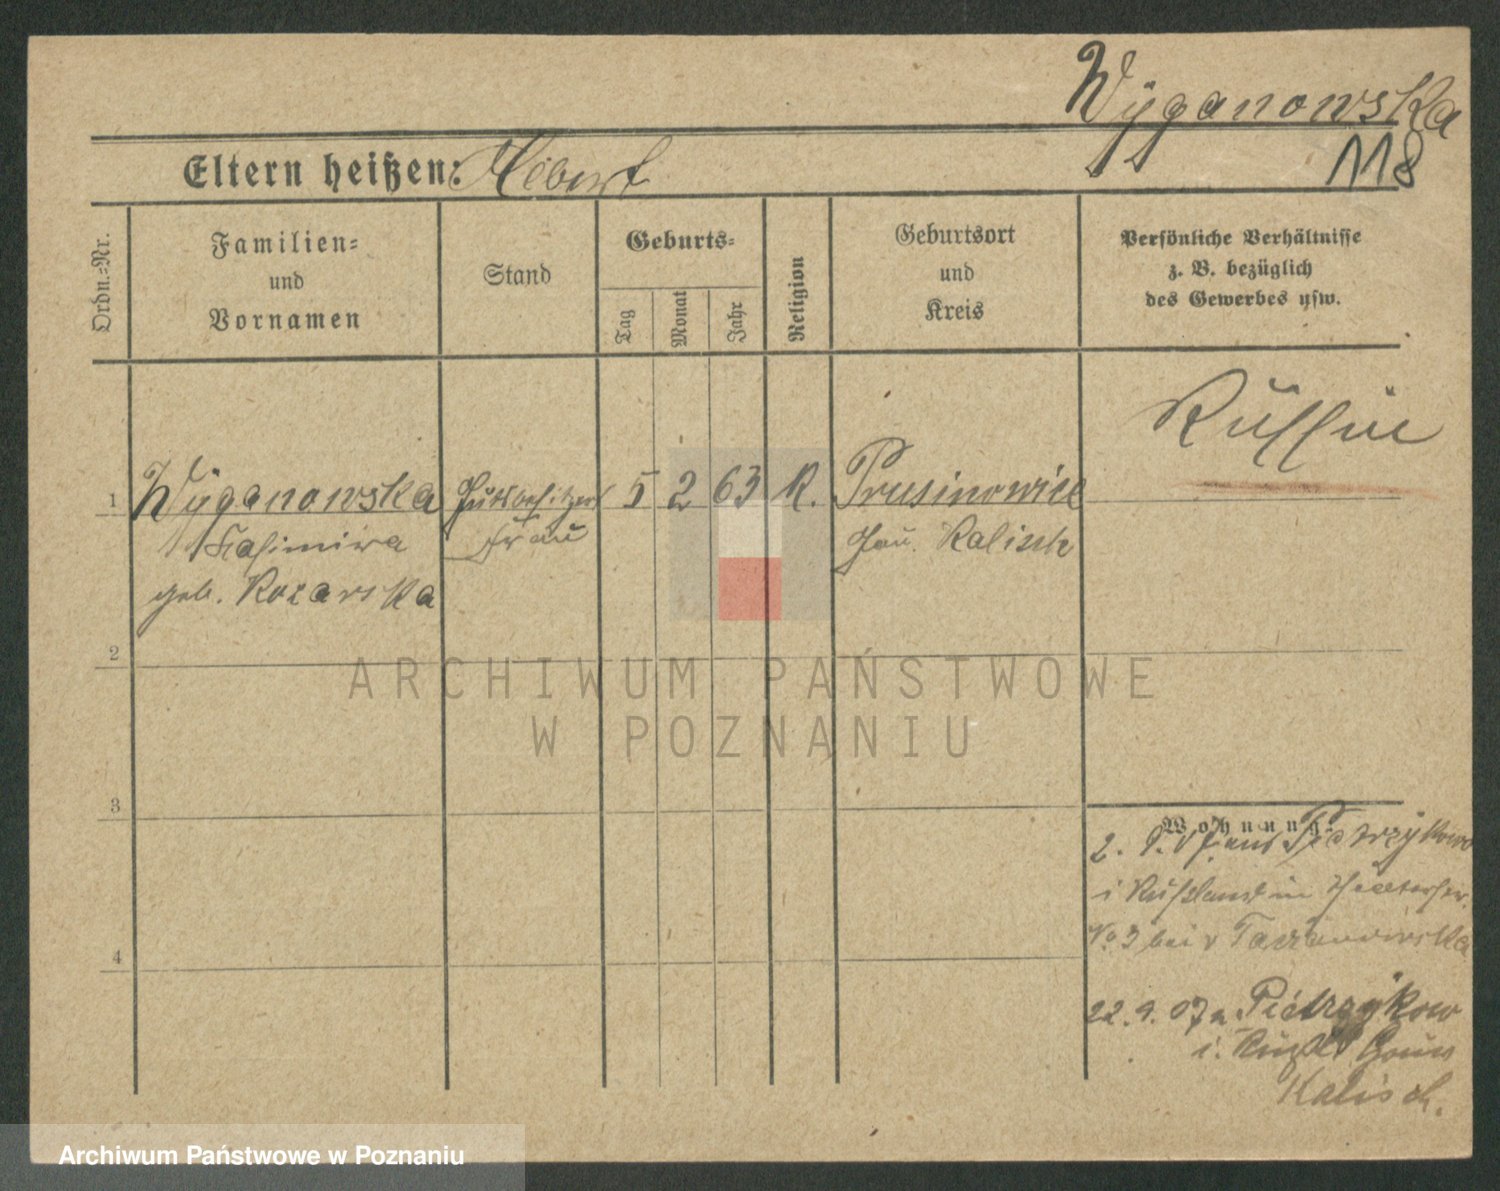 Wyganowska
118
Eltern heißen:
Ordn.-Nr.
Familien-
und
Vornamen
Stand
Geburts-
Tag
Monat
Jahr
Religion
Geburtsort
und
Kreis
Persönliche Verhältnisse
z. B. bezüglich
des Gewerbes usw.
Russin
1
Wyganowska
Kasimira
geb. Kozarska
Gutsbesitzers
Frau
5
2
63
K.
Prusinowice
Gou. Kalisch
2
3
4
Wohnung
2. 9. 07 aus Pietrzykow
i Rußland in
No 3 bei v
22. 9. 07 n. Pietrzykow
i. Rußld Gouv
Kalisch.
ARCHIWUM PAŃSTWOWE
W POZNANIU
Archiwum Państwowe w Poznaniu